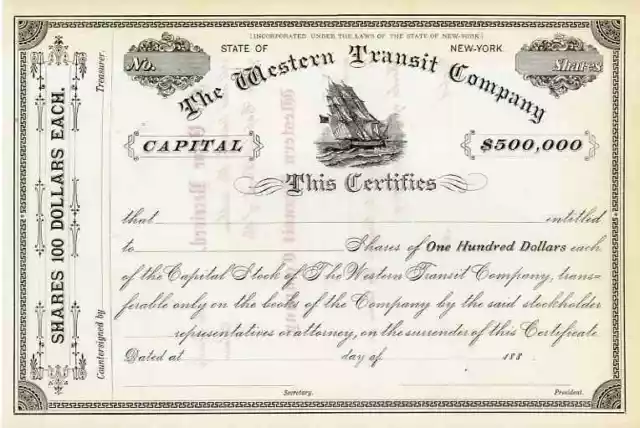 [INCORPORATED UNDER THE LAWS OF THE STATE OF NEW-YORK]
STATE OF NEW-YORK.
No.
Shares
The Western Transit Company
CAPITAL
$500,000
This Certifies
that entitled
to Shares of One Hundred Dollars each
of the Capital Stock of The Western Transit Company, trans=
ferable only on the books of the Company by the said stockholder
representatives or attorney, on the surrender of this Certificate
Dated at day of 188
Secretary. President.
SHARES 100 DOLLARS EACH.
Countersigned by Treasurer.